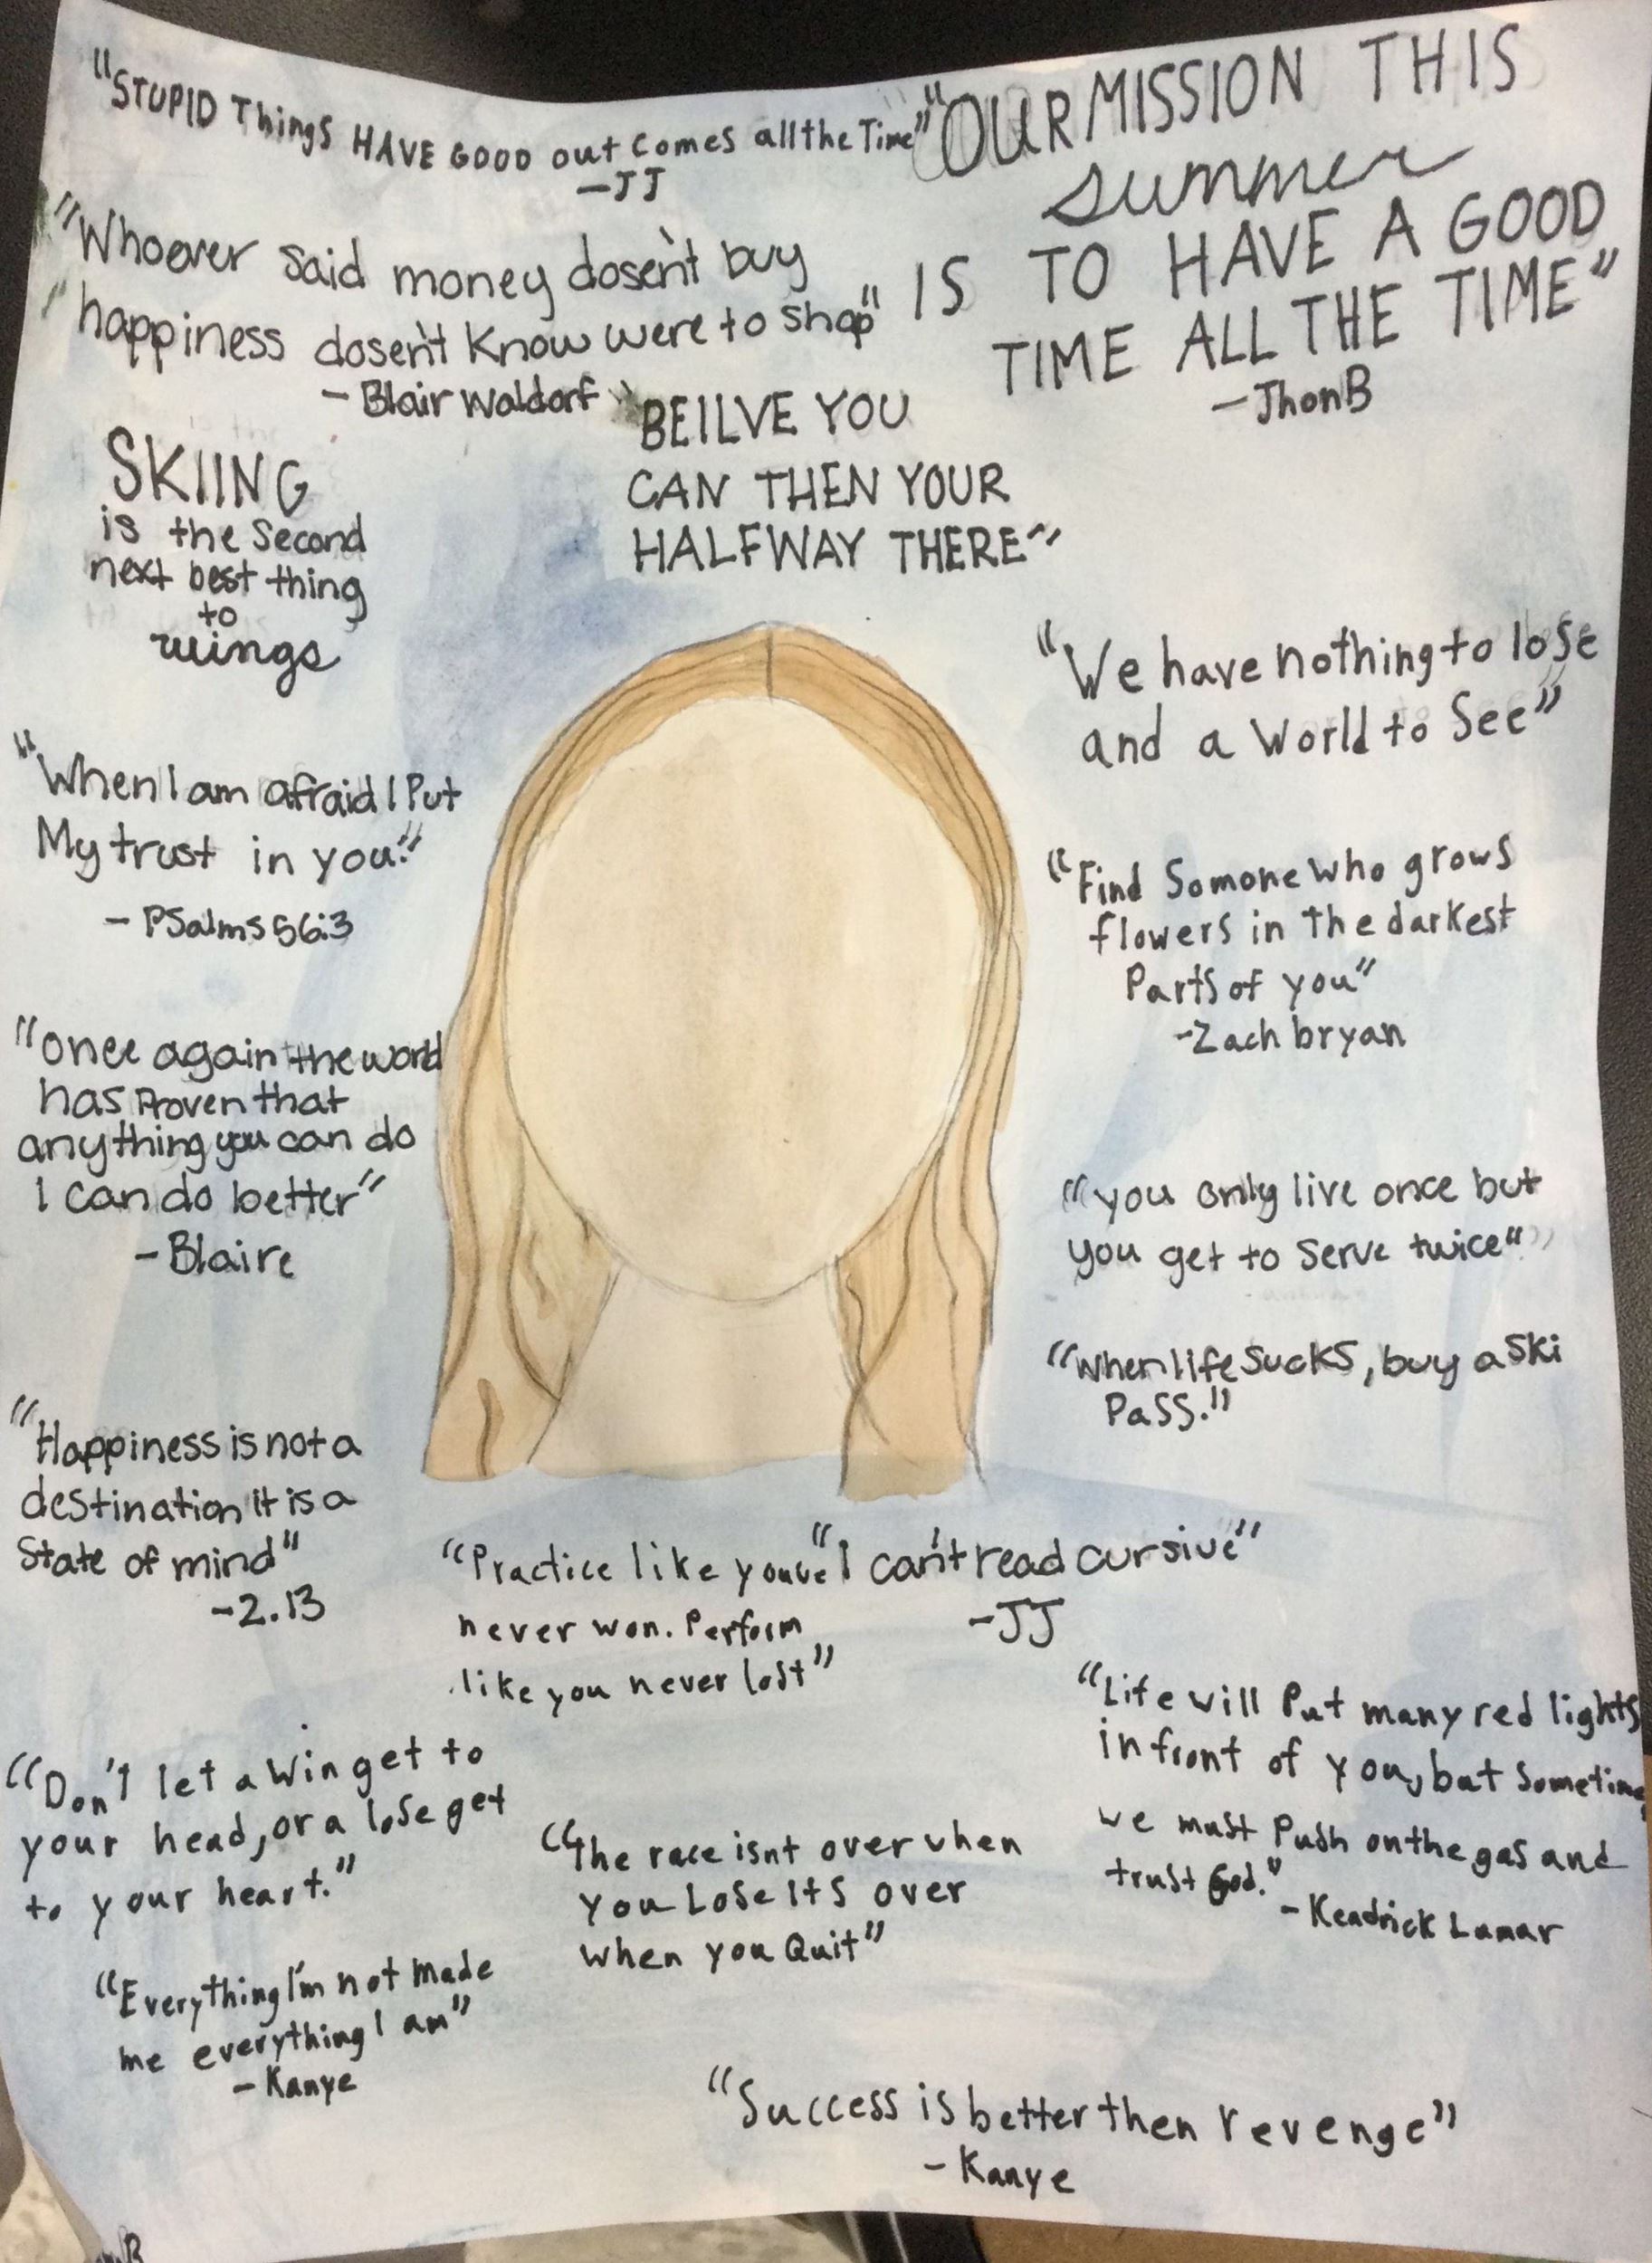 "STUPID Things HAVE GOOD out comes all the Time"
—JJ
"OUR MISSION THIS
summer
IS TO HAVE A GOOD
TIME ALL THE TIME"
—JhonB
"Whoever said money dosen't buy
happiness dosen't know were to shop"
- Blair Waldorf
"BEILVE YOU
CAN THEN YOUR
HALFWAY THERE"
SKIING
is the second
next best thing
to
wings
"We have nothing to lose
and a world to see"
"When I am afraid I Put
My trust in you."
- PSalms 56:3
"Find Somone who grows
flowers in the darkest
Parts of you"
-Zach bryan
"once again the world
has proven that
anything you can do
I can do better"
- Blaire
"you only live once but
you get to serve twice"
"when life sucks, buy a ski
Pass."
"Happiness is not a
destination it is a
state of mind"
-2.13
"Practice like youve
never won. Perform
like you never lost"
"I can't read cursive"
-JJ
"Life will Put many red lights
in front of you, but Sometime
we must Push on the gas and
trust God."
- Keadrick Lamar
"Don't let a win get to
your head, or a lose get
to your heart."
"The race isnt over when
you Lose Its over
when you Quit"
"Everything I'm not made
me everything I am"
- Kanye
"Success is better then revenge"
- Kanye